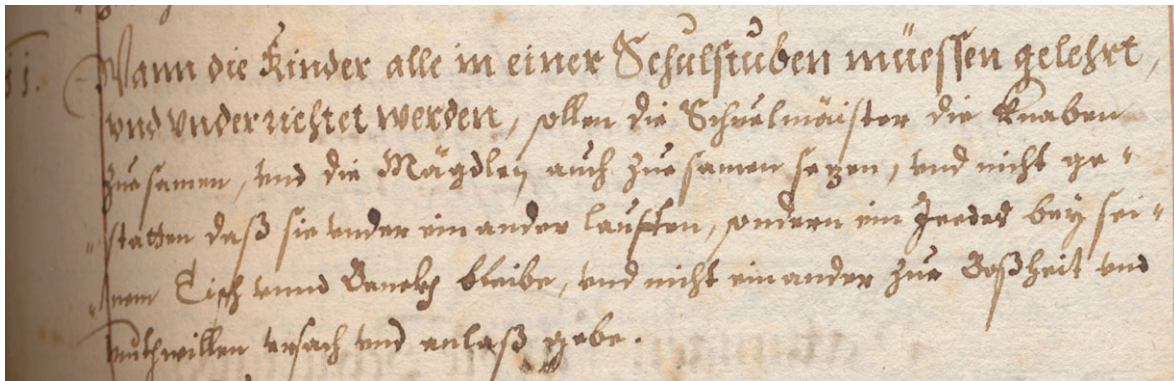 11. Wann die Kinder alle in einer Schulstuben müessen gelehrt,
vnd vnderrichtet werden, sollen die Schuelmäister die Knaben
zue samen, vnd die Mägdlen auch zue samen sezen, vnd nicht ge-
statten daß sie vnder ein ander lauffen, sondern ein Jeedes bey sei-
nem Tisch vnnd Banckh bleibe, vnd nicht ein ander zue Boßheit vnd
muthwillen vrsach vnd anlaß gebe.